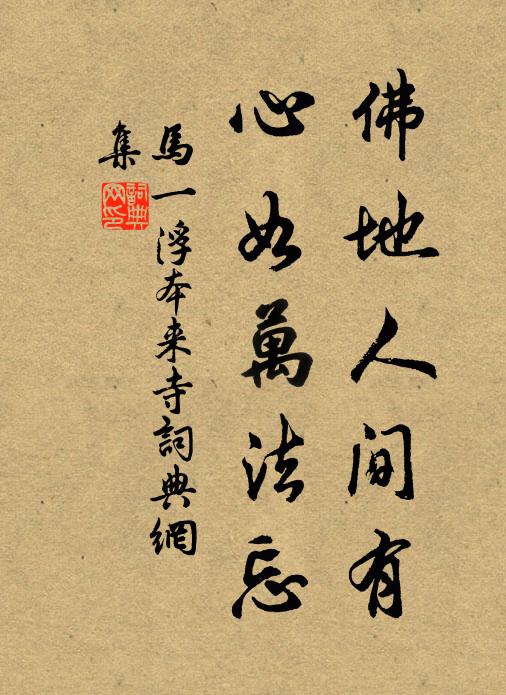 佛地人间有
心如萬法忘
馬一浮本来寺詞典網
集
詞典网印